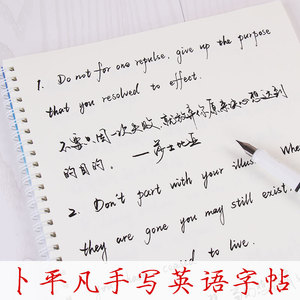 1. Do not for one repulse, give up the purpose
that you resolved to effect.
不要只因一次失败,就放弃你原来决心想达到
的目的。 —莎士比亚
2. Don't part with your illus Whe
they are gone you may still exist,
to live.
卜平凡手写英语字帖